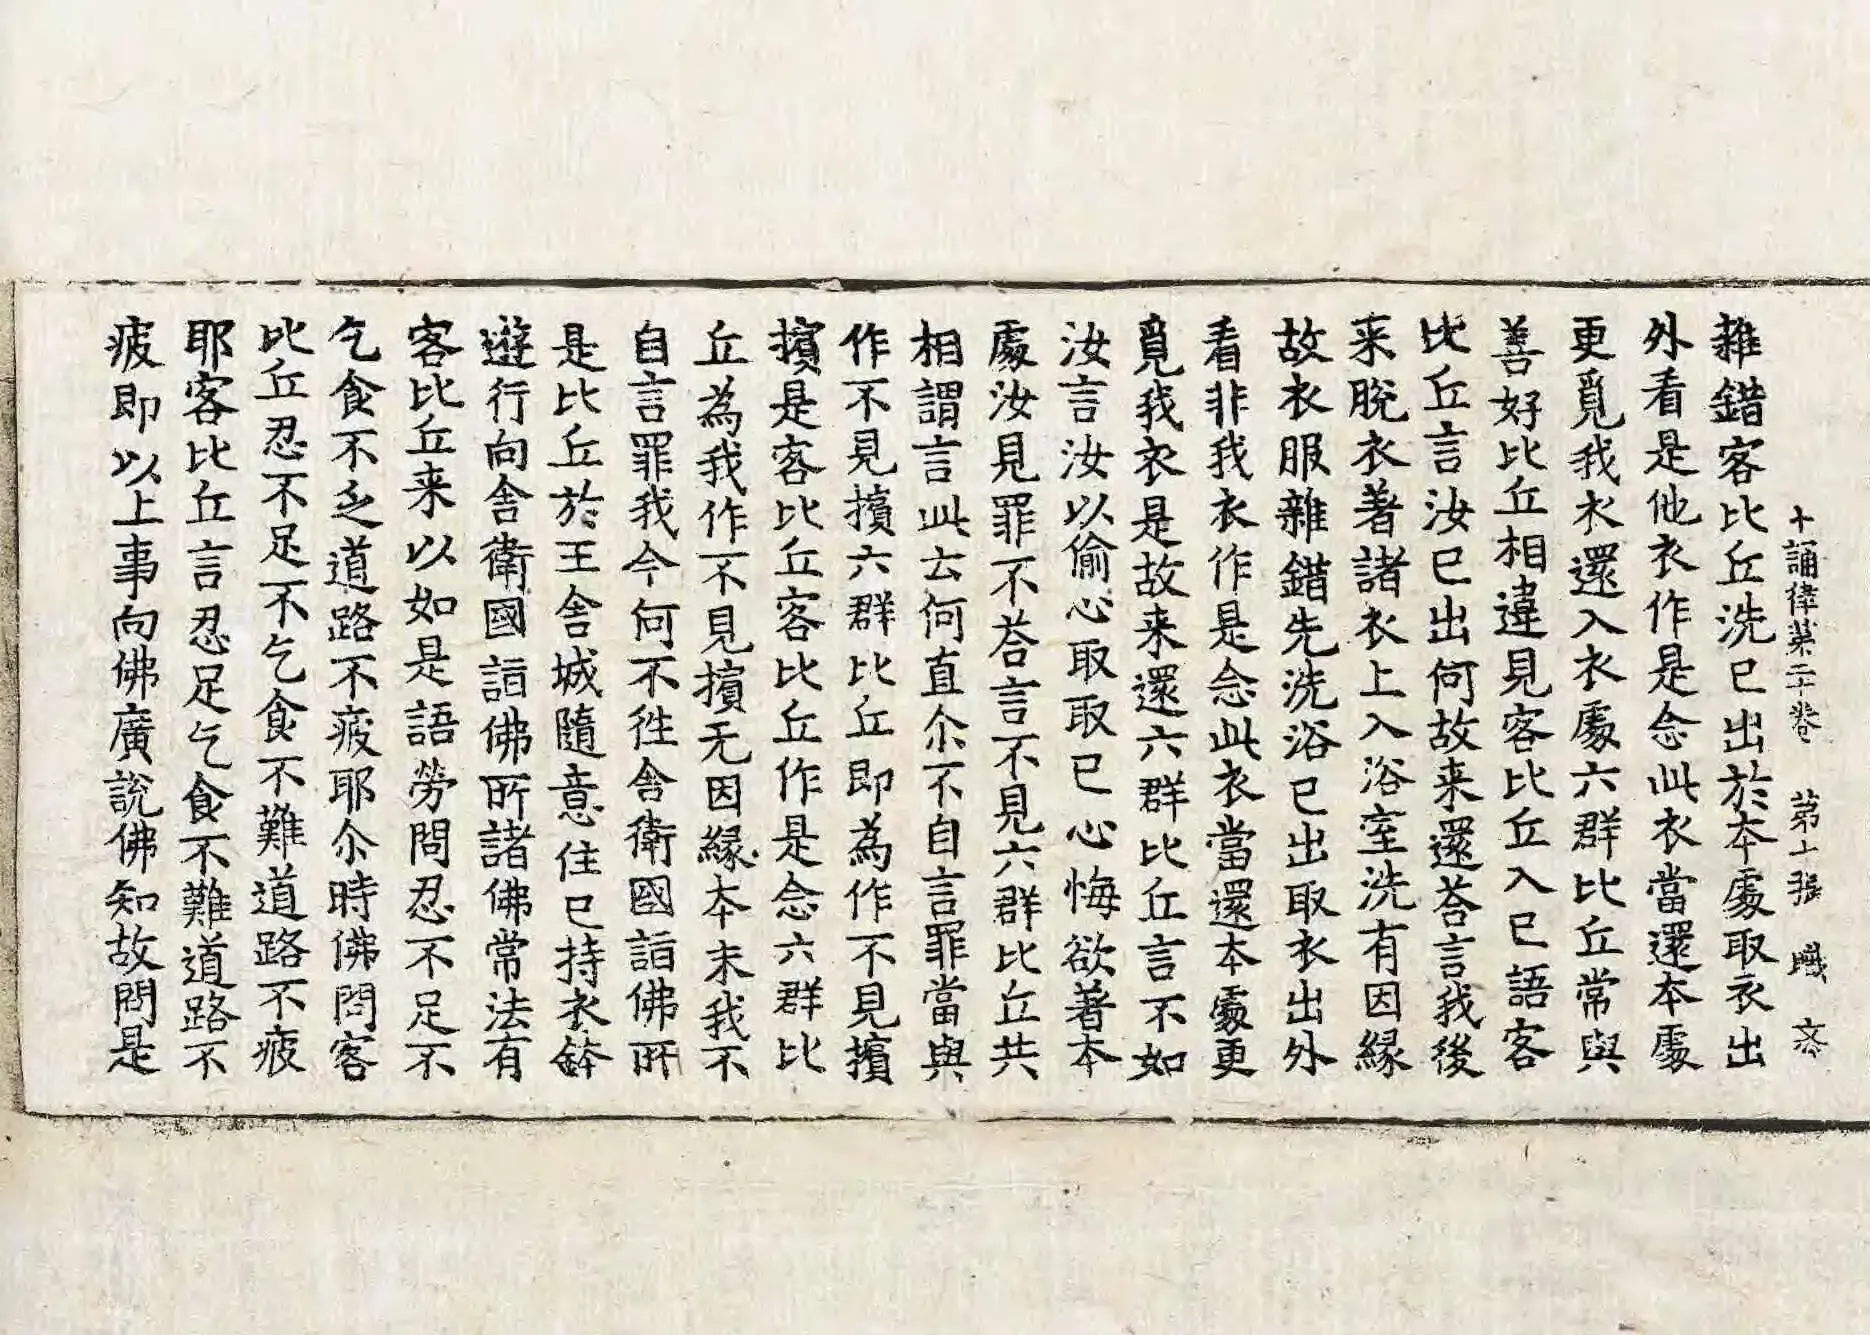 十誦律苐二十卷 苐十張 職 文
雜錯客比丘洗已出於本處取衣出
外看是他衣作是念此衣當還本處
更覓我衣還入衣處六群比丘常與
善好比丘相違見客比丘入已語客
比丘言汝已出何故来還荅言我後
来脫衣著諸衣上入浴室洗有因緣
故衣服雜錯先洗浴已出取衣出外
看非我衣作是念此衣當還本處更
覓我衣是故来還六群比丘言不如
汝言汝以偷心取取已心悔欲著本
處汝見罪不荅言不見六群比丘共
相謂言此云何直尒不自言罪當與
作不見擯六群比丘即為作不見擯
擯是客比丘客比丘作是念六群比
丘為我作不見擯无因緣本末我不
自言罪我今何不徃舍衛國詣佛所
是比丘於王舍城隨意住已持衣鉢
遊行向舍衛國詣佛所諸佛常法有
客比丘来以如是語勞問忍不足不
乞食不乏道路不疲耶尒時佛問客
比丘忍不足不乞食不難道路不疲
耶客比丘言忍足乞食不難道路不
疲即以上事向佛廣說佛知故問是